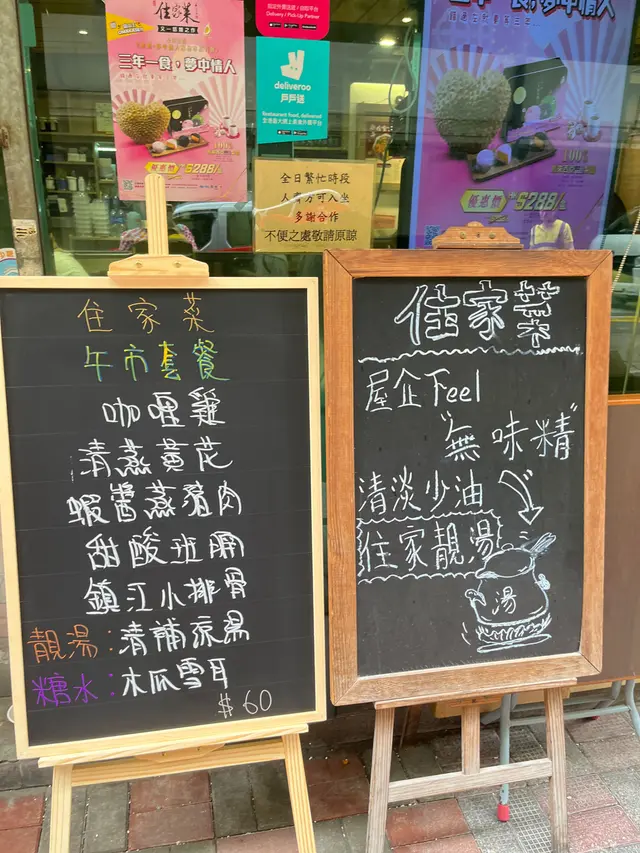 住家菜
三年一食，夢中情人
$288
Delivery / Pick-Up Partner
deliveroo
戶戶送
Restaurant food, delivered
全日繁忙時段
人齊方可入坐
多謝合作
不便之處敬請原諒
優惠價
$288
住家菜
午市套餐
咖喱雞
清蒸黃花
蝦醬蒸豬肉
甜酸班腩
鎮江小排骨
靚湯：清補涼湯
糖水：木瓜雪耳
$60
住家菜
屋企Feel
"無味精"
清淡少油
住家靚湯
湯